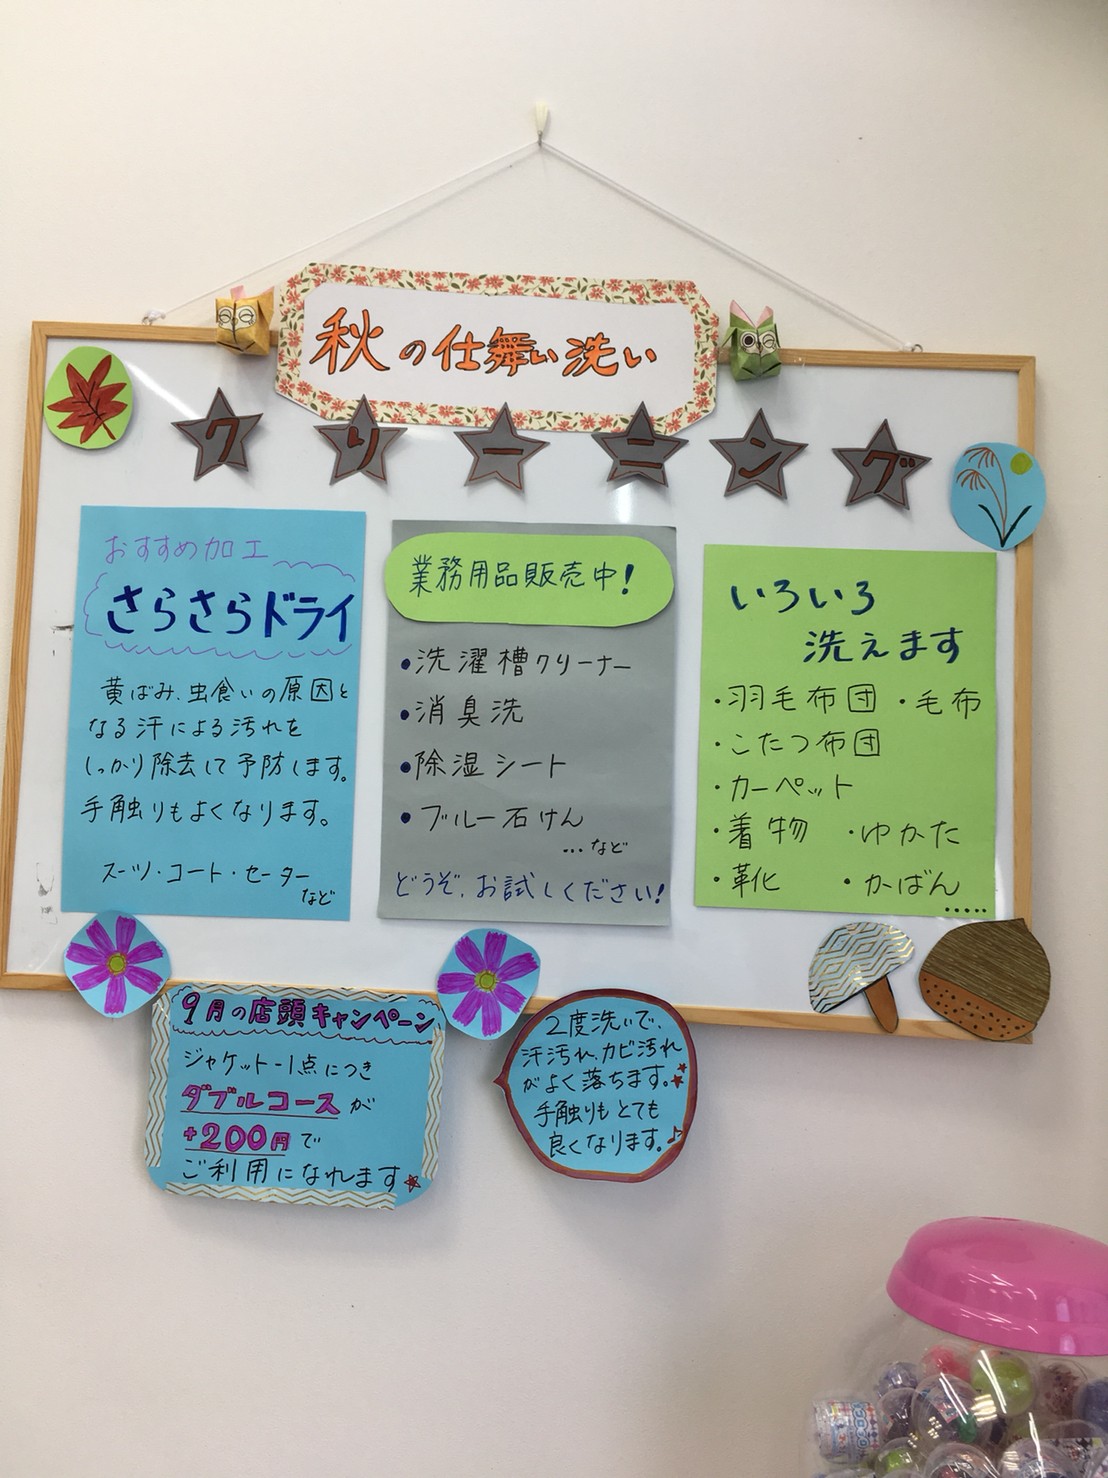 秋の仕舞い洗い
クリーニング
おすすめ加工
さらさらドライ
黄ばみ、虫食いの原因と
なる汗による汚れを
しっかり除去して予防します。
手触りもよくなります。
スーツ・コート・セーター
など
業務用品販売中!
•洗濯槽クリーナー
•消臭洗
•除湿シート
•ブルー石けん
…など
どうぞ、お試しください!
いろいろ
洗えます
・羽毛布団 ・毛布
・こたつ布団
・カーペット
・着物 ・ゆかた
・靴 ・かばん
.....
9月の店頭キャンペーン
ジャケット-1点につき
ダブルコースが
+200円で
ご利用になれます☆
2度洗いで、
汗汚れ、カビ汚れ
がよく落ちます。
手触りもとても
良くなります。♪